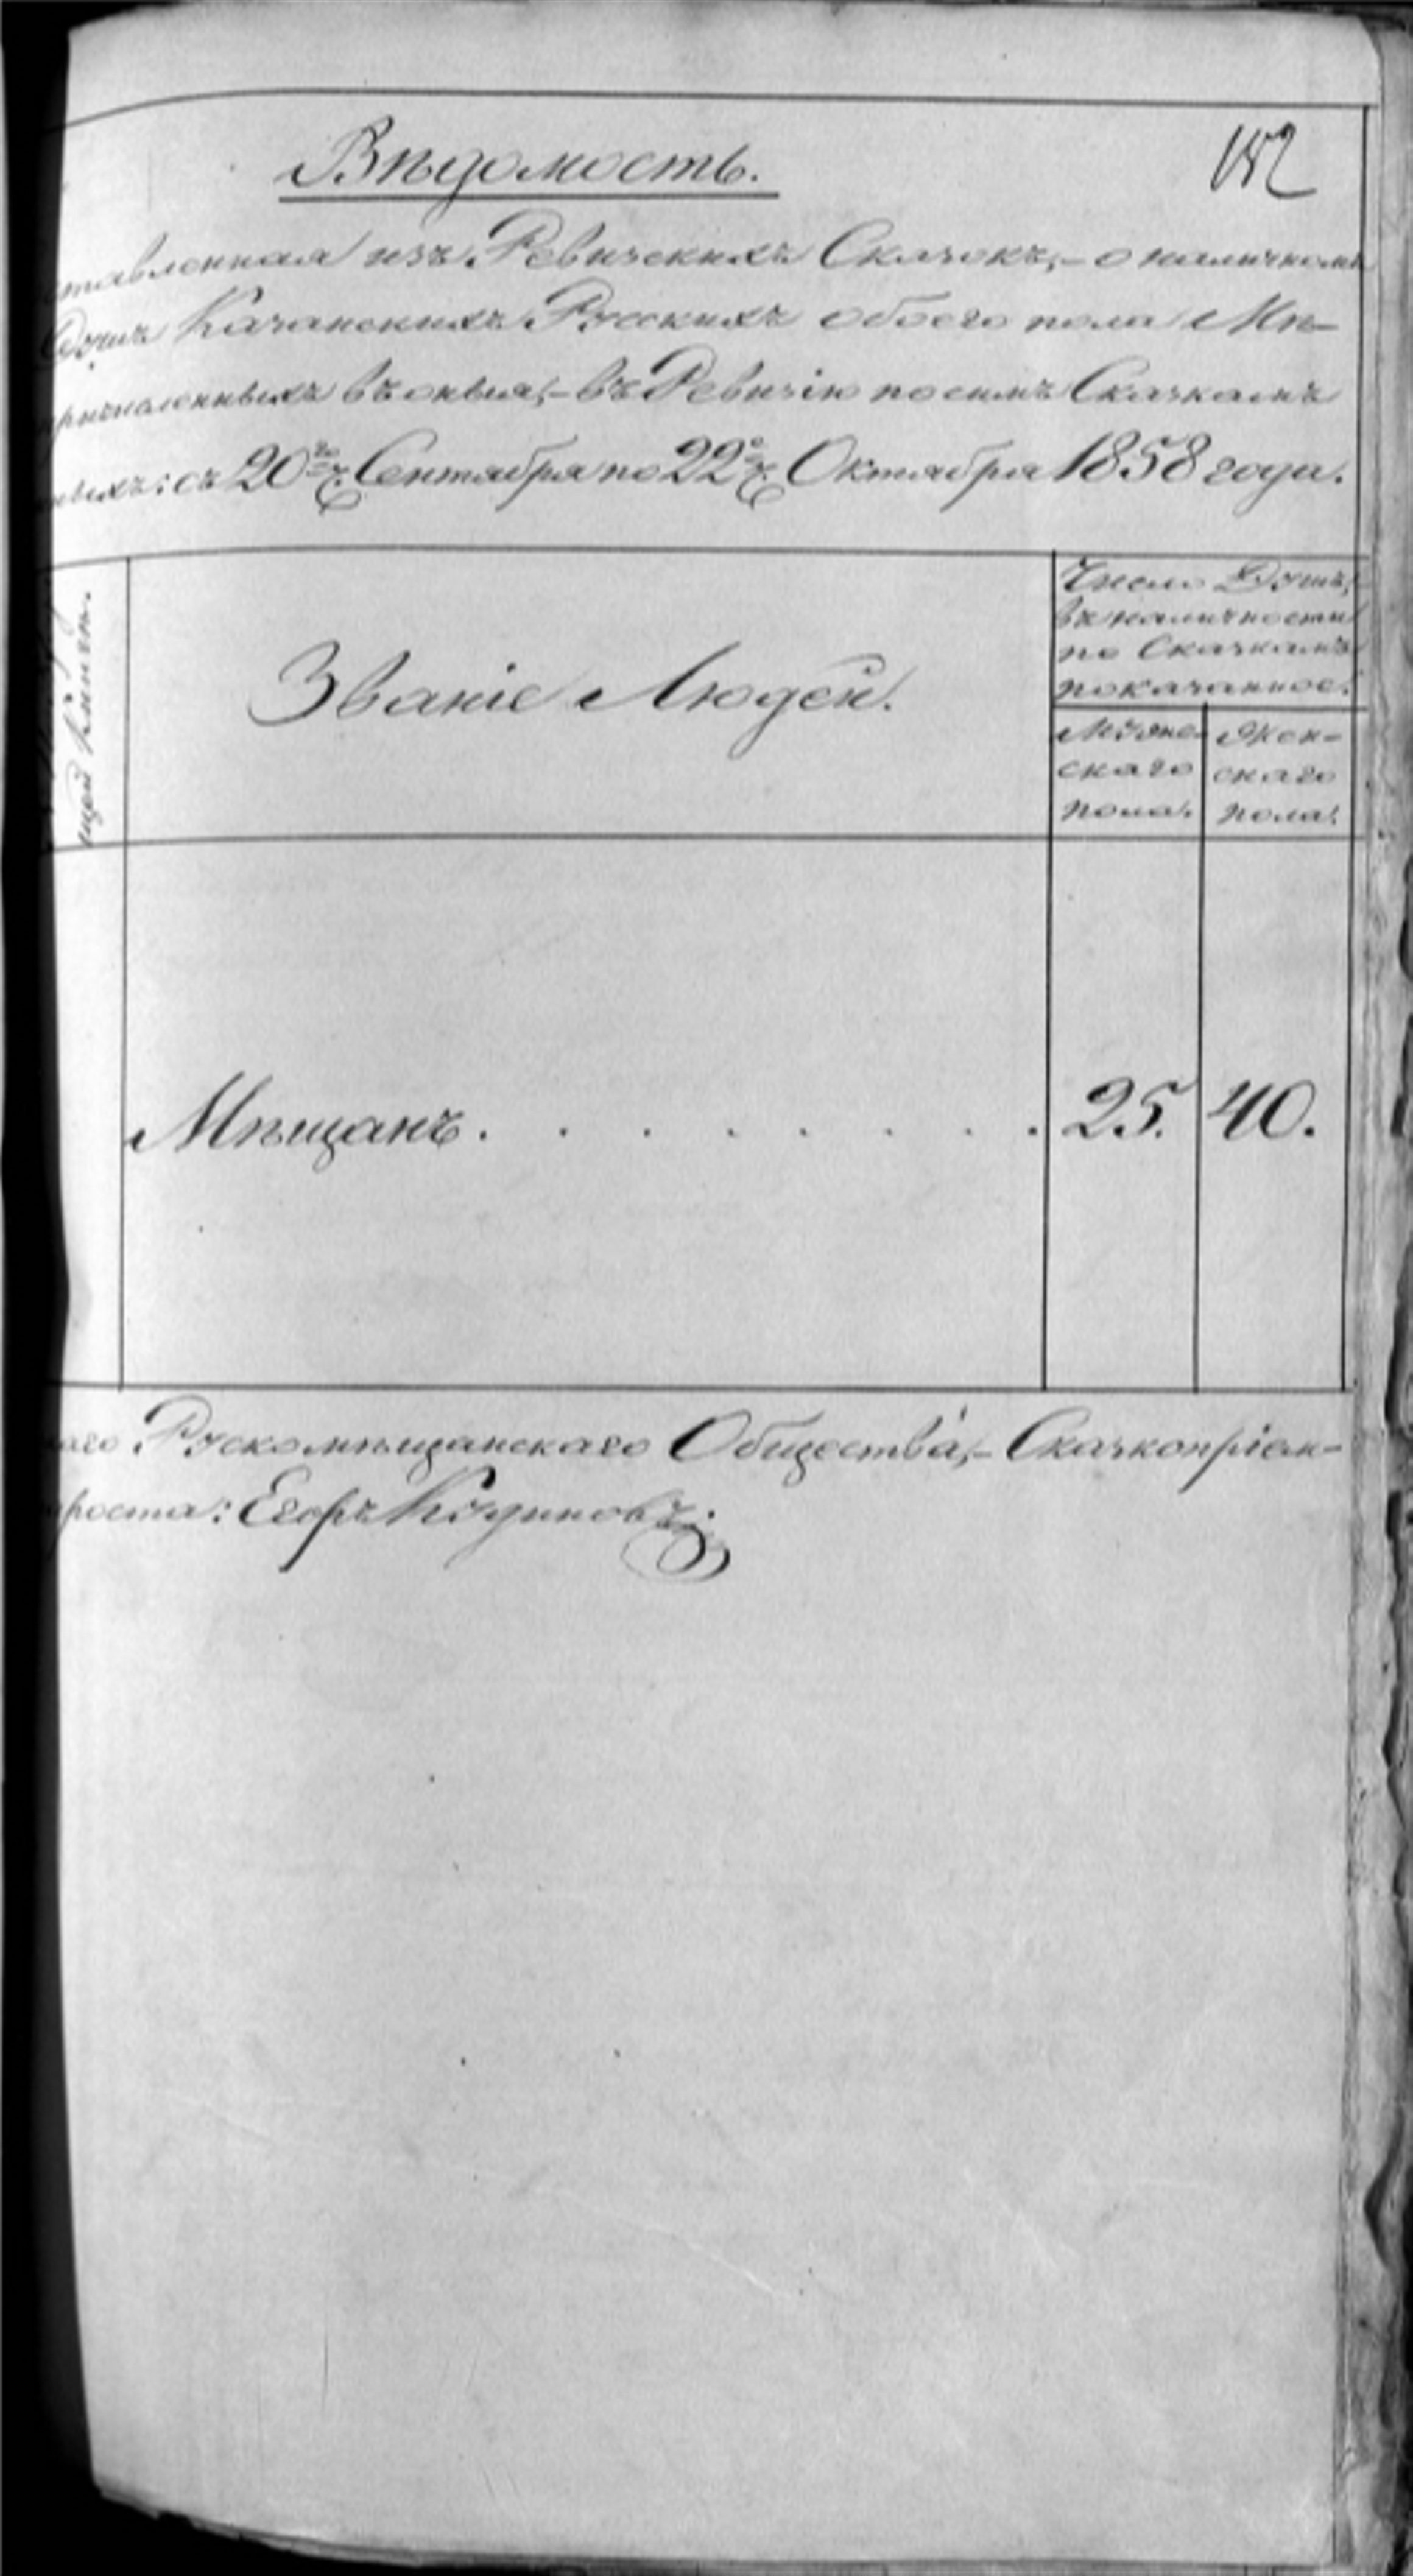 Вѣдомость.
182
ставленная изъ Ревизскихъ Сказокъ,- о наличномъ
Душъ Казанскихъ Русскихъ обоего пола Мѣ-
причисленныхъ въ оныя,- въ Ревизію по симъ Сказкамъ
ныхъ: съ 20го ч. Сентября по 22е ч. Октября 1858 года.
щей книги.
Званіе Людей.
Число Душъ,
въ наличности
по Сказкамъ
показанное.
Мужe-
скаго
пола.
Жен-
скаго
пола.
Мѣщанъ. . . . . . . . 25. 40.
аго Рускомѣщанскаго Общества,- Сказкопріем-
роста: Егоръ Кудиновъ.